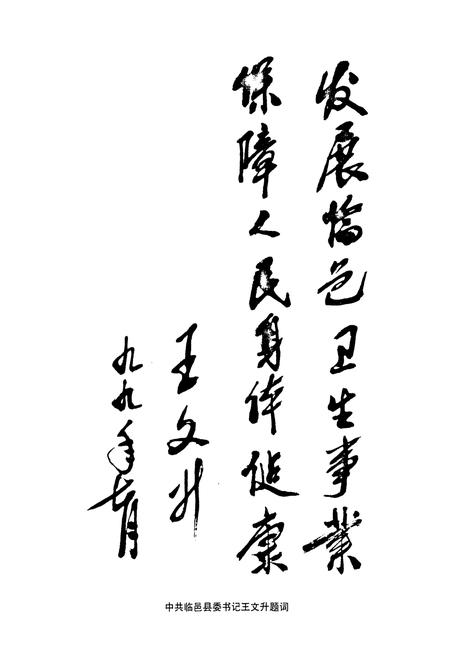 发展临邑卫生事业
保障人民身体健康
王文升
九九年七月
中共临邑县委书记王文升题词